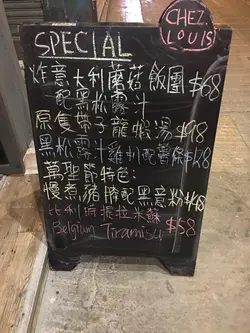 CHEZ
LOUIS
SPECIAL
炸意大利蘑菇飯團 $68
配黑松露汁
原隻帶子龍蝦湯
黑松露汁雞 配薯條
萬聖節特色:
慢煮豬 配黑意粉
比利時提拉米蘇 $58
Belgium Tiramisu